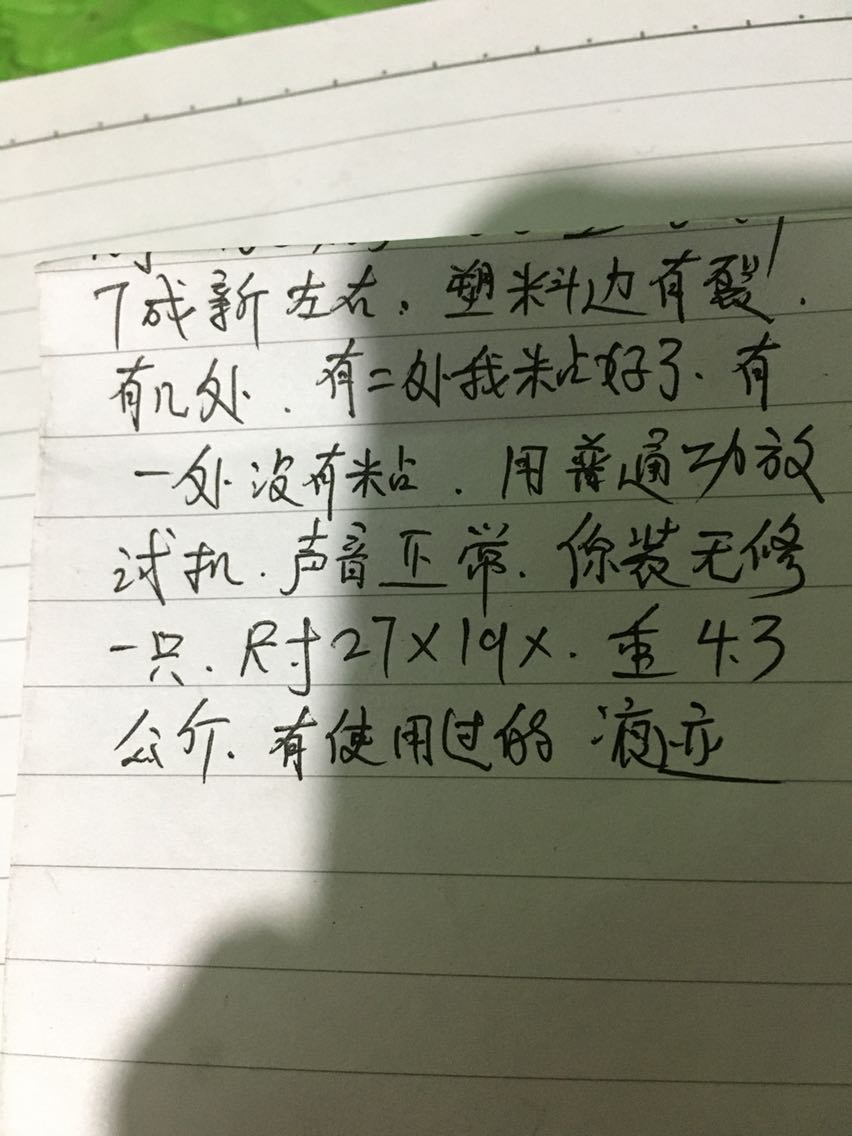 7成新左右。塑料边有裂.
有几处.有二处我粘好了.有
一处没有粘.用普通功放
试机.声音正常.你装无修
一只.尺寸27×19×.重4.3
公斤.有使用过的 液迹